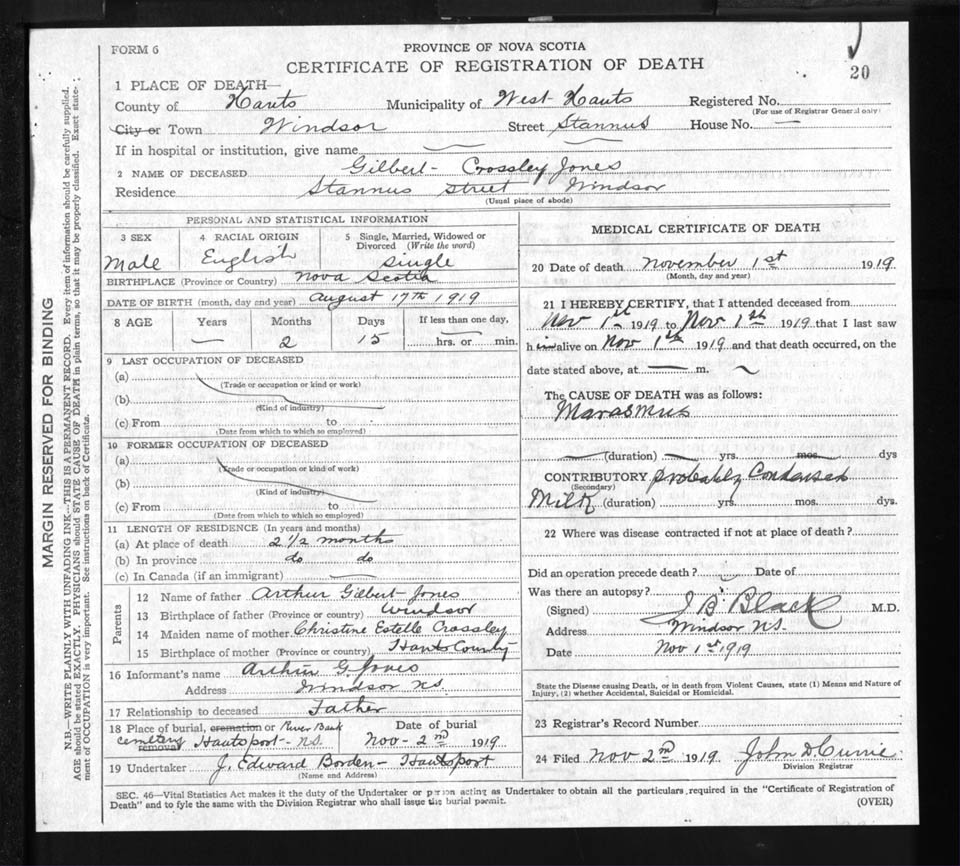 FORM 6
PROVINCE OF NOVA SCOTIA
CERTIFICATE OF REGISTRATION OF DEATH
20
1 PLACE OF DEATH—
County of Hants Municipality of West Hants Registered No.
(For use of Registrar General only)
City or Town Windsor Street Stannus House No. —
If in hospital or institution, give name
2 NAME OF DECEASED Gilbert Crossley Jones
Residence Stannus Street Windsor
(Usual place of abode)
PERSONAL AND STATISTICAL INFORMATION
3 SEX
Male
4 RACIAL ORIGIN
English
5 Single, Married, Widowed or
Divorced (Write the word)
Single
BIRTHPLACE (Province or Country) Nova Scotia
DATE OF BIRTH (month, day and year) August 17th 1919
8 AGE Years Months Days If less than one day,
— 2 15 hrs. or min.
9 LAST OCCUPATION OF DECEASED
(a)
(Trade or occupation or kind or work)
(b)
(Kind of industry)
(c) From to
(Date from which to which so employed)
10 FORMER OCCUPATION OF DECEASED
(a)
(Trade or occupation or kind or work)
(b)
(Kind of industry)
(c) From to
(Date from which to which so employed)
11 LENGTH OF RESIDENCE (In years and months)
(a) At place of death 2 1/2 months
(b) In province do do
(c) In Canada (if an immigrant) —
Parents
12 Name of father Arthur Gilbert Jones
13 Birthplace of father (Province or country) Windsor
14 Maiden name of mother Christine Estelle Crossley
15 Birthplace of mother (Province or country) Hants County
16 Informant's name Arthur G. Jones
Address Windsor N.S.
17 Relationship to deceased Father
18 Place of burial, cremation or River Bank
removal cemetery Hantsport - N.S.
Date of burial
Nov - 2nd 1919
19 Undertaker J. Edward Borden - Hantsport
(Name and Address)
MEDICAL CERTIFICATE OF DEATH
20 Date of death November 1st 1919
(Month, day and year)
21 I HEREBY CERTIFY, that I attended deceased from
Nov 1st 1919 to Nov 1st 1919 that I last saw
him alive on Nov 1st 1919 and that death occurred, on the
date stated above, at — m.
The CAUSE OF DEATH was as follows:
Marasmus
(duration) yrs. mos. dys
CONTRIBUTORY probably Condensed
(Secondary)
Milk (duration) yrs. mos. dys.
22 Where was disease contracted if not at place of death?
Did an operation precede death? Date of
Was there an autopsy?
(Signed) J B Black M.D.
Address Windsor N.S.
Date Nov 1st 1919
State the Disease causing Death, or in death from Violent Causes, state (1) Means and Nature of
Injury, (2) whether Accidental, Suicidal or Homicidal.
23 Registrar's Record Number
24 Filed Nov 2nd 1919 John D Currie
Division Registrar
SEC. 46—Vital Statistics Act makes it the duty of the Undertaker or person acting as Undertaker to obtain all the particulars required in the "Certificate of Registration of
Death" and to fyle the same with the Division Registrar who shall issue the burial permit.
(OVER)
MARGIN RESERVED FOR BINDING
N.B.—WRITE PLAINLY WITH UNFADING INK—THIS IS A PERMANENT RECORD. Every item of information should be carefully supplied.
AGE should be stated EXACTLY. PHYSICIANS should STATE CAUSE OF DEATH in plain terms, so that it may be properly classified. Exact state-
ment of OCCUPATION is very important. See instructions on back of Certificate.